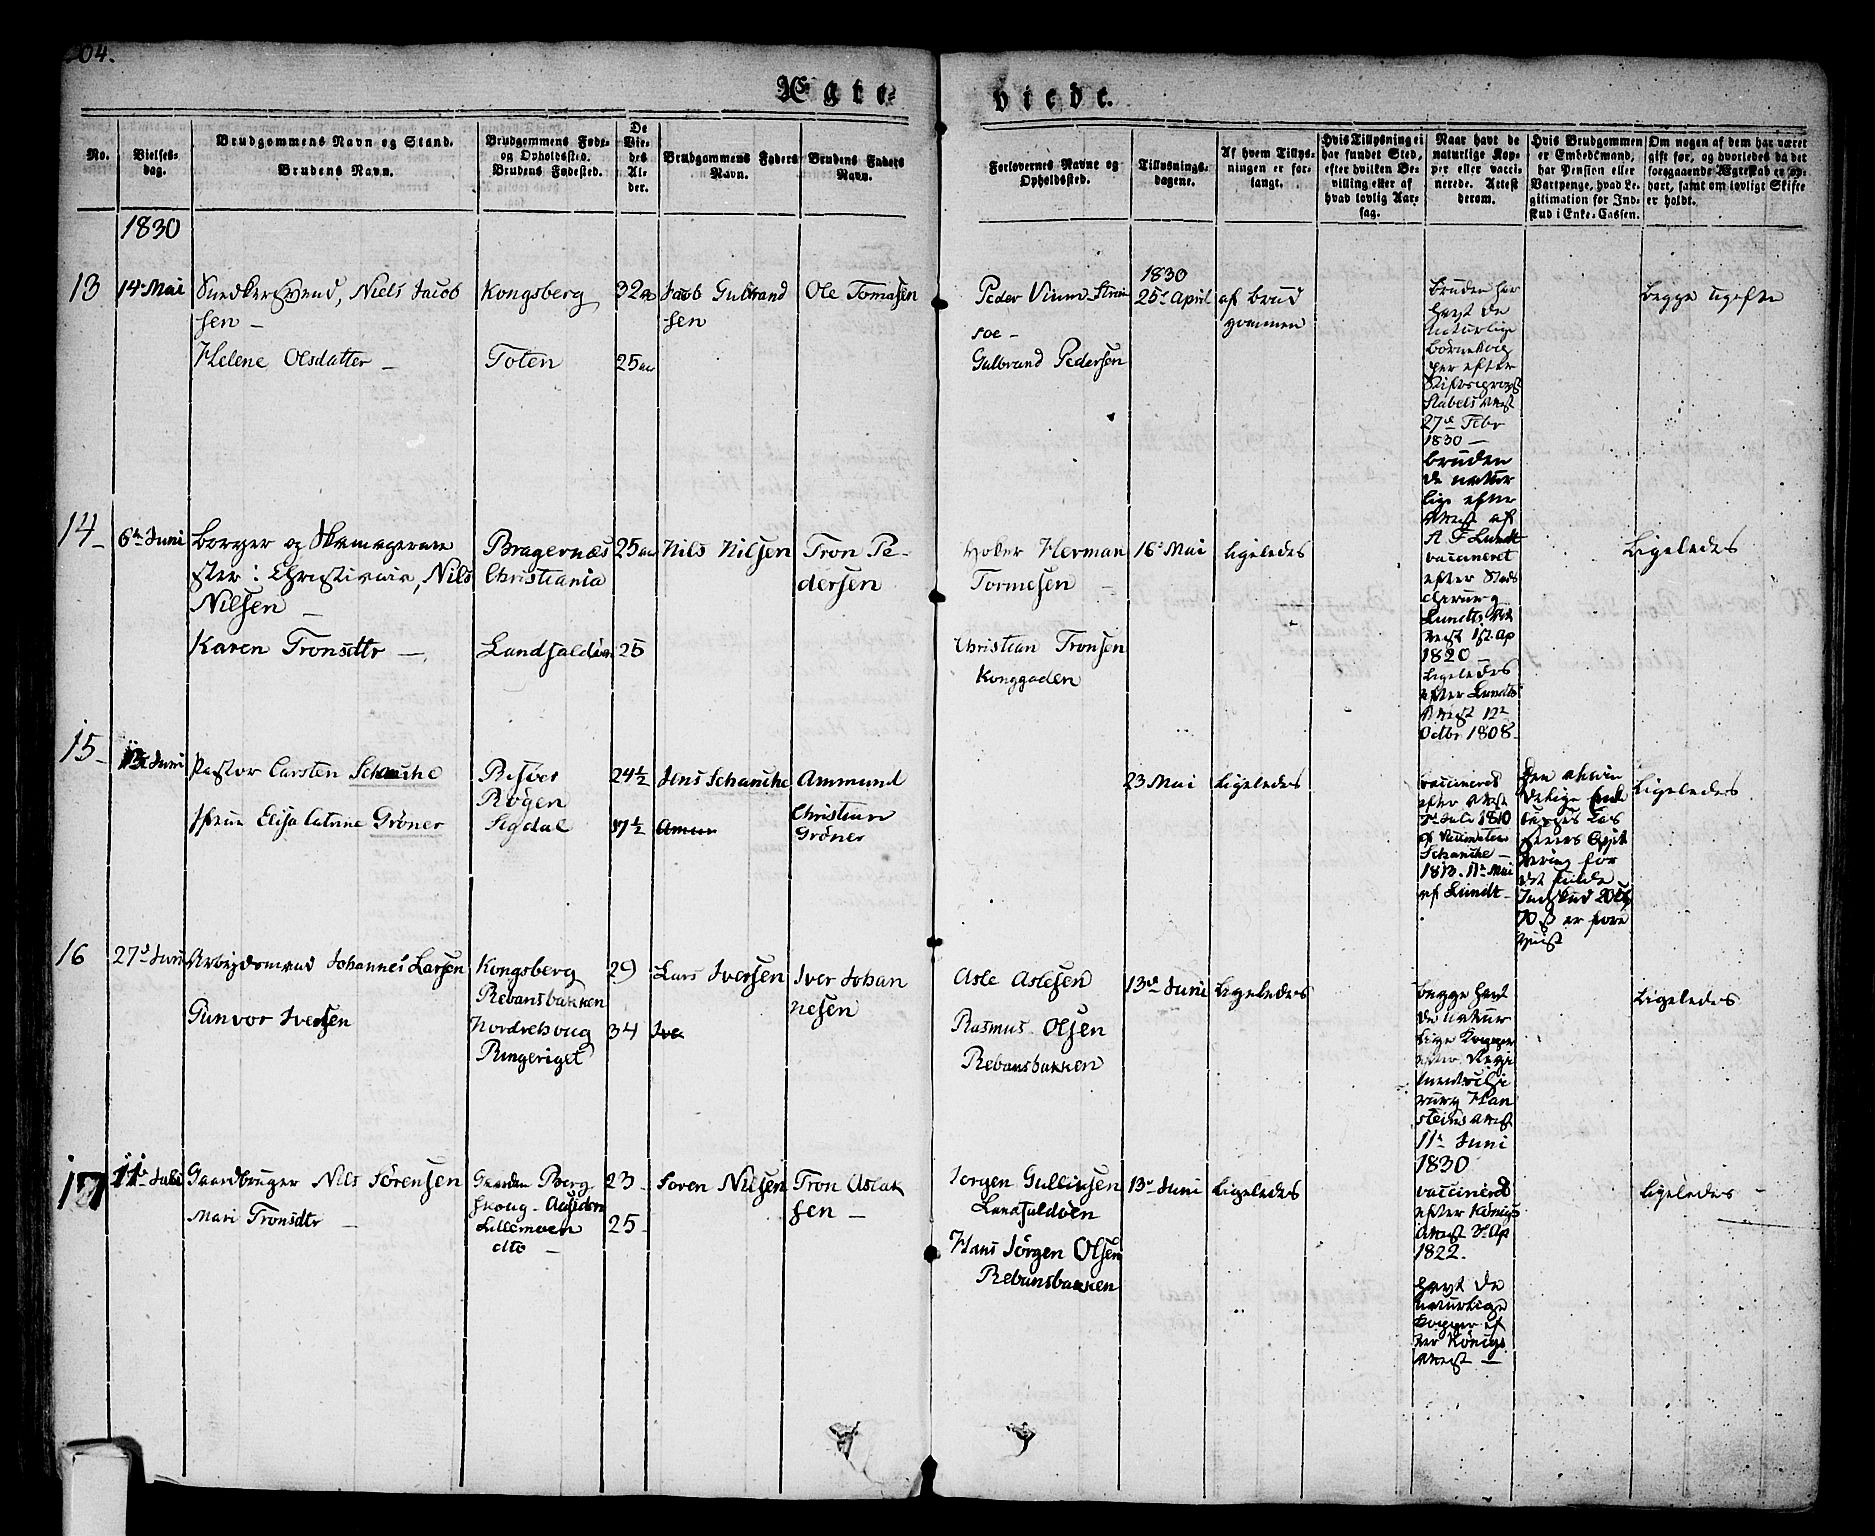 204.
Ægte-
viede.
No.
Vielses-
dag.
Brudgommens Navn og Stand.
Brudens Navn.
Brudgommens Føde-
og Opholdssted.
Brudens Fødested.
De
Vie-
des
Al-
der.
Brudgommens Faders
Navn.
Brudens Faders
Navn.
Forlovernes Navne og
Opholdssted.
Tillysnings-
dagene.
Af hvem Tillys-
ningen er for-
langt.
Hvis Tillysning ei
har fundet Sted,
efter hvilken Be-
villing eller af
hvad lovlig Aar-
sag.
Naar havt de
naturlige Kop-
per eller vacci-
nerede. Attest
derom.
Hvis Brudgommen
er Embedsmand,
har Pension eller
Vartpenge, hvad Le-
gitimation for Ind-
skud i Enke-Cassen.
Om nogen af dem har været
gift før, og hvorledes da det
foregaaende Ægteskab er op-
hørt, samt om lovligt Skifte
er holdt.
1830
13
14 Mai
Snedkersvend, Niels Jacob
sen -
Helene Olsdatter -
Kongsberg
Toten
32 aa
25 aa
Jacob Gulbrand
sen
Ole Tomasen
Peder Strøm
soe -
Gulbrand Pedersen
1830
25 April
af Brud
gommen
Bruden har
havt de
naturlige
efter
27de Febr
1830 -
Bruden
de natur
lige efter
Attest af
A F Lundt
Begge ugifte
14
6te Juni
Borger og Skomagerme
ster i Christiania, Nils
Nilsen -
Karen Tronsdtr -
Bragernæs
Christiania
Landfaldöen
25 aa
25
Nils Nilsen
Tron Pe-
dersen
Holer Herman
Tormesen -
Christian Tronsen
Konggaden
16 Mai
ligeledes
vaccineret
efter Stads
chirurg
Lundts At
test 1st. Ap
1820 -
Ligeledes
efter Lundts
Attest 12te
Octbr 1808 -
Ligeledes
15
13 Juni
Pastor Carsten Schanche
Elisa Catrine Gröner
Rögen
Sigdal
24½
17½
Jens Schanche
Amun
Ammund
Christian
Gröner
23 Mai
Ligeledes
vaccineret
efter Attest
Juli 1810
af
Schanche -
1813. 11te Mai
af Lundt -
Den almin
delige Enke
for
det fulde
Indskud
er fore
viist
Ligeledes
16
27de Juni
Arbeidsmand Johannes Larsen
Gunvor Iversen
Kongsberg
Rebansbakken
Nordrehoug
Ringeriget
29
34
Lars Iversen
Ive
Iver Johan
nesen
Asle Aslesen
Rasmus Olsen
Rebansbakken
13de Juni
Ligeledes
Begge havt
de natur
lige Kopper
efter Regi
mentschi
rurg Han
steins Attest
11te Juni
1830
Ligeledes
17
11te Juli
Gaardbruger Nils Sörensen
Mari Tronsdtr -
Gaarden Berg
skoug - Aasiden
Lillemoen
dto -
23
25
Soren Nilsen
Tron Aslak
sen -
Jorgen Gullirsen
Landfaldoen
Hans Jörgen Olsen
Rebansbakken
13de Juni
Ligeledes
vaccineret
efter Königs
Attest 7 Ap
1822.
havt de
naturlige
Kopper ef
ter Königs
Attest -
Ligeledes